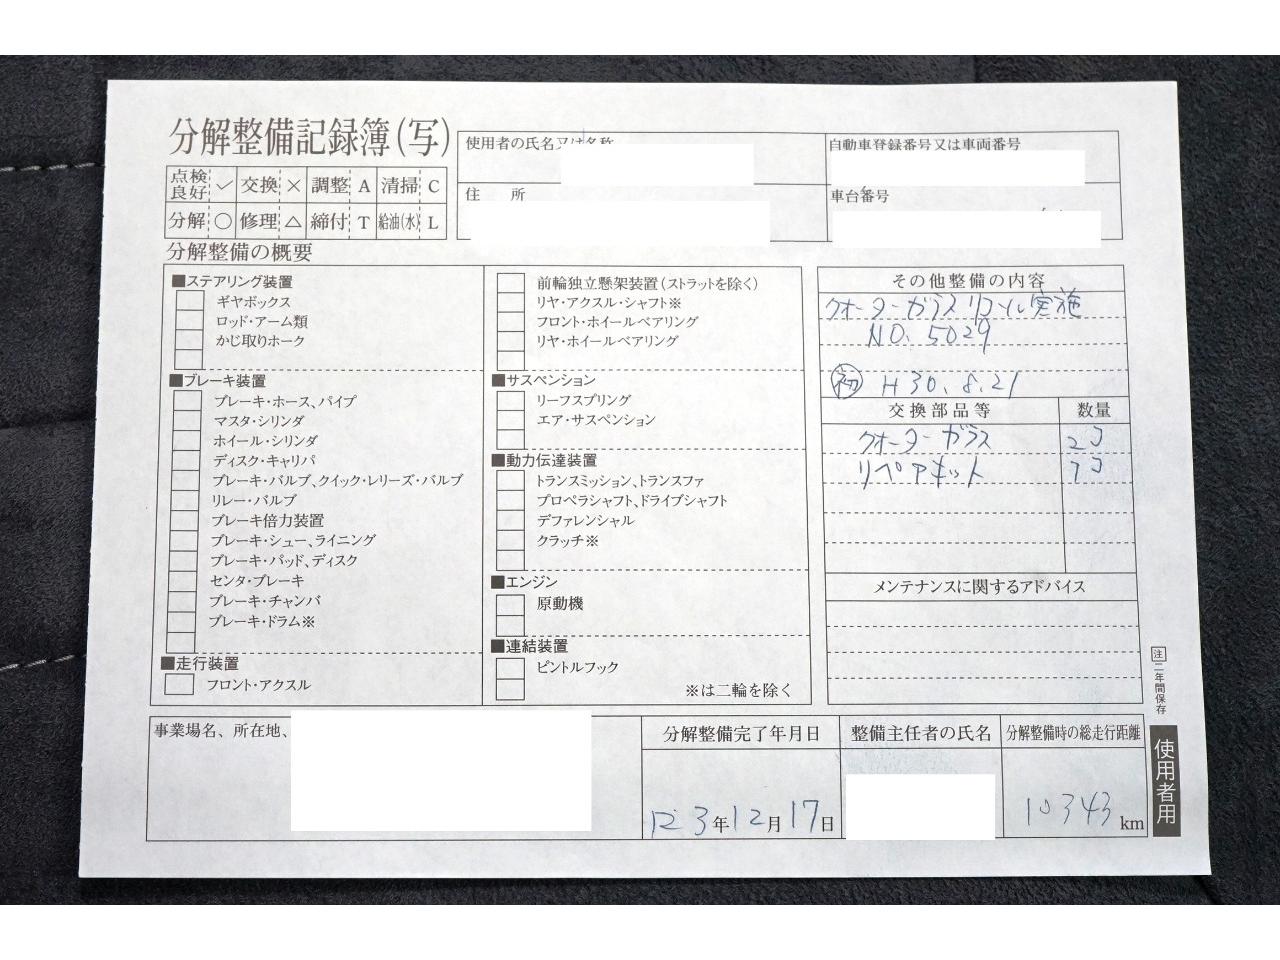 分解整備記録簿(写)
点検良好 ✓ 交換 × 調整 A 清掃 C
分解 ○ 修理 △ 締付 T 給油(水) L
使用者の氏名又は名称
住 所
自動車登録番号又は車両番号
車台番号
分解整備の概要
■ステアリング装置
ギヤボックス
ロッド・アーム類
かじ取りホーク
■ブレーキ装置
ブレーキ・ホース、パイプ
マスタ・シリンダ
ホイール・シリンダ
ディスク・キャリパ
ブレーキ・バルブ、クイック・レリーズ・バルブ
リレー・バルブ
ブレーキ倍力装置
ブレーキ・シュー、ライニング
ブレーキ・パッド、ディスク
センタ・ブレーキ
ブレーキ・チャンバ
ブレーキ・ドラム※
■走行装置
フロント・アクスル
前輪独立懸架装置(ストラットを除く)
リヤ・アクスル・シャフト※
フロント・ホイールベアリング
リヤ・ホイールベアリング
■サスペンション
リーフスプリング
エア・サスペンション
■動力伝達装置
トランスミッション、トランスファ
プロペラシャフト、ドライブシャフト
デファレンシャル
クラッチ※
■エンジン
原動機
■連結装置
ピントルフック
※は二輪を除く
その他整備の内容
クオーターガラスリコール実施
NO. 5029
初 H30.8.21
交換部品等 数量
クオーターガラス 2コ
リペアキット 1コ
メンテナンスに関するアドバイス
注 二年間保存
使用者用
事業場名、所在地、
分解整備完了年月日
3年12月17日
整備主任者の氏名
分解整備時の総走行距離
10343 km